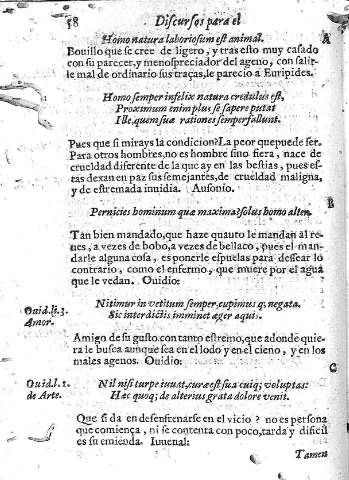 58 Discursos para el
Homo natura laboriosum est animal.
A
Bouillo que se cree de ligero, y tras esto muy casado
con su parecer, y menospreciador del ageno, con salir-
le mal de ordinario sus traças, le parecio a Euripides.
Homo semper infelix natura credulus est,
Proximum enim plus se sapere putat
Ille, quem suæ rationes semper fallunt.
Pues que si mirays la condicion? La peor que puede ser.
Para otros hombres, no es hombre sino fiera, nace de
crueldad diferente de la que ay en las bestias, pues es-
tas dexan en paz sus semejantes, de crueldad maligna,
y de estremada inuidia. Ausonio.
B
Pernicies hominum quæ maxima? solus homo alter.
Tan bien mandado, que haze quanto le mandan al re-
ues, a vezes de bobo, a vezes de bellaco, pues el man-
darle alguna cosa, es ponerle espuelas para dessear lo
contrario, como el enfermo, que muere por el agua
que le vedan. Ouidio:
Ouid. li. 3.
Amor.
Nitimur in vetitum semper, cupimus q; negata.
Sic interdictis imminet æger aquis.
Amigo de su gusto, con tanto estremo, que adonde quie-
ra le busca aunque sea en el lodo y en el cieno, y en los
males agenos. Ouidio:
C
Ouid. l. 1.
de Arte.
Nil nisi turpe iuuat, curæ est sua cuiq; voluptas:
Hæc quoq; de alterius grata dolore venit.
Que si da en desenfrenarse en el vicio? no es persona
que comiença, ni se contenta con poco, tarda y dificil
es su emienda. Iuuenal:
Tamen